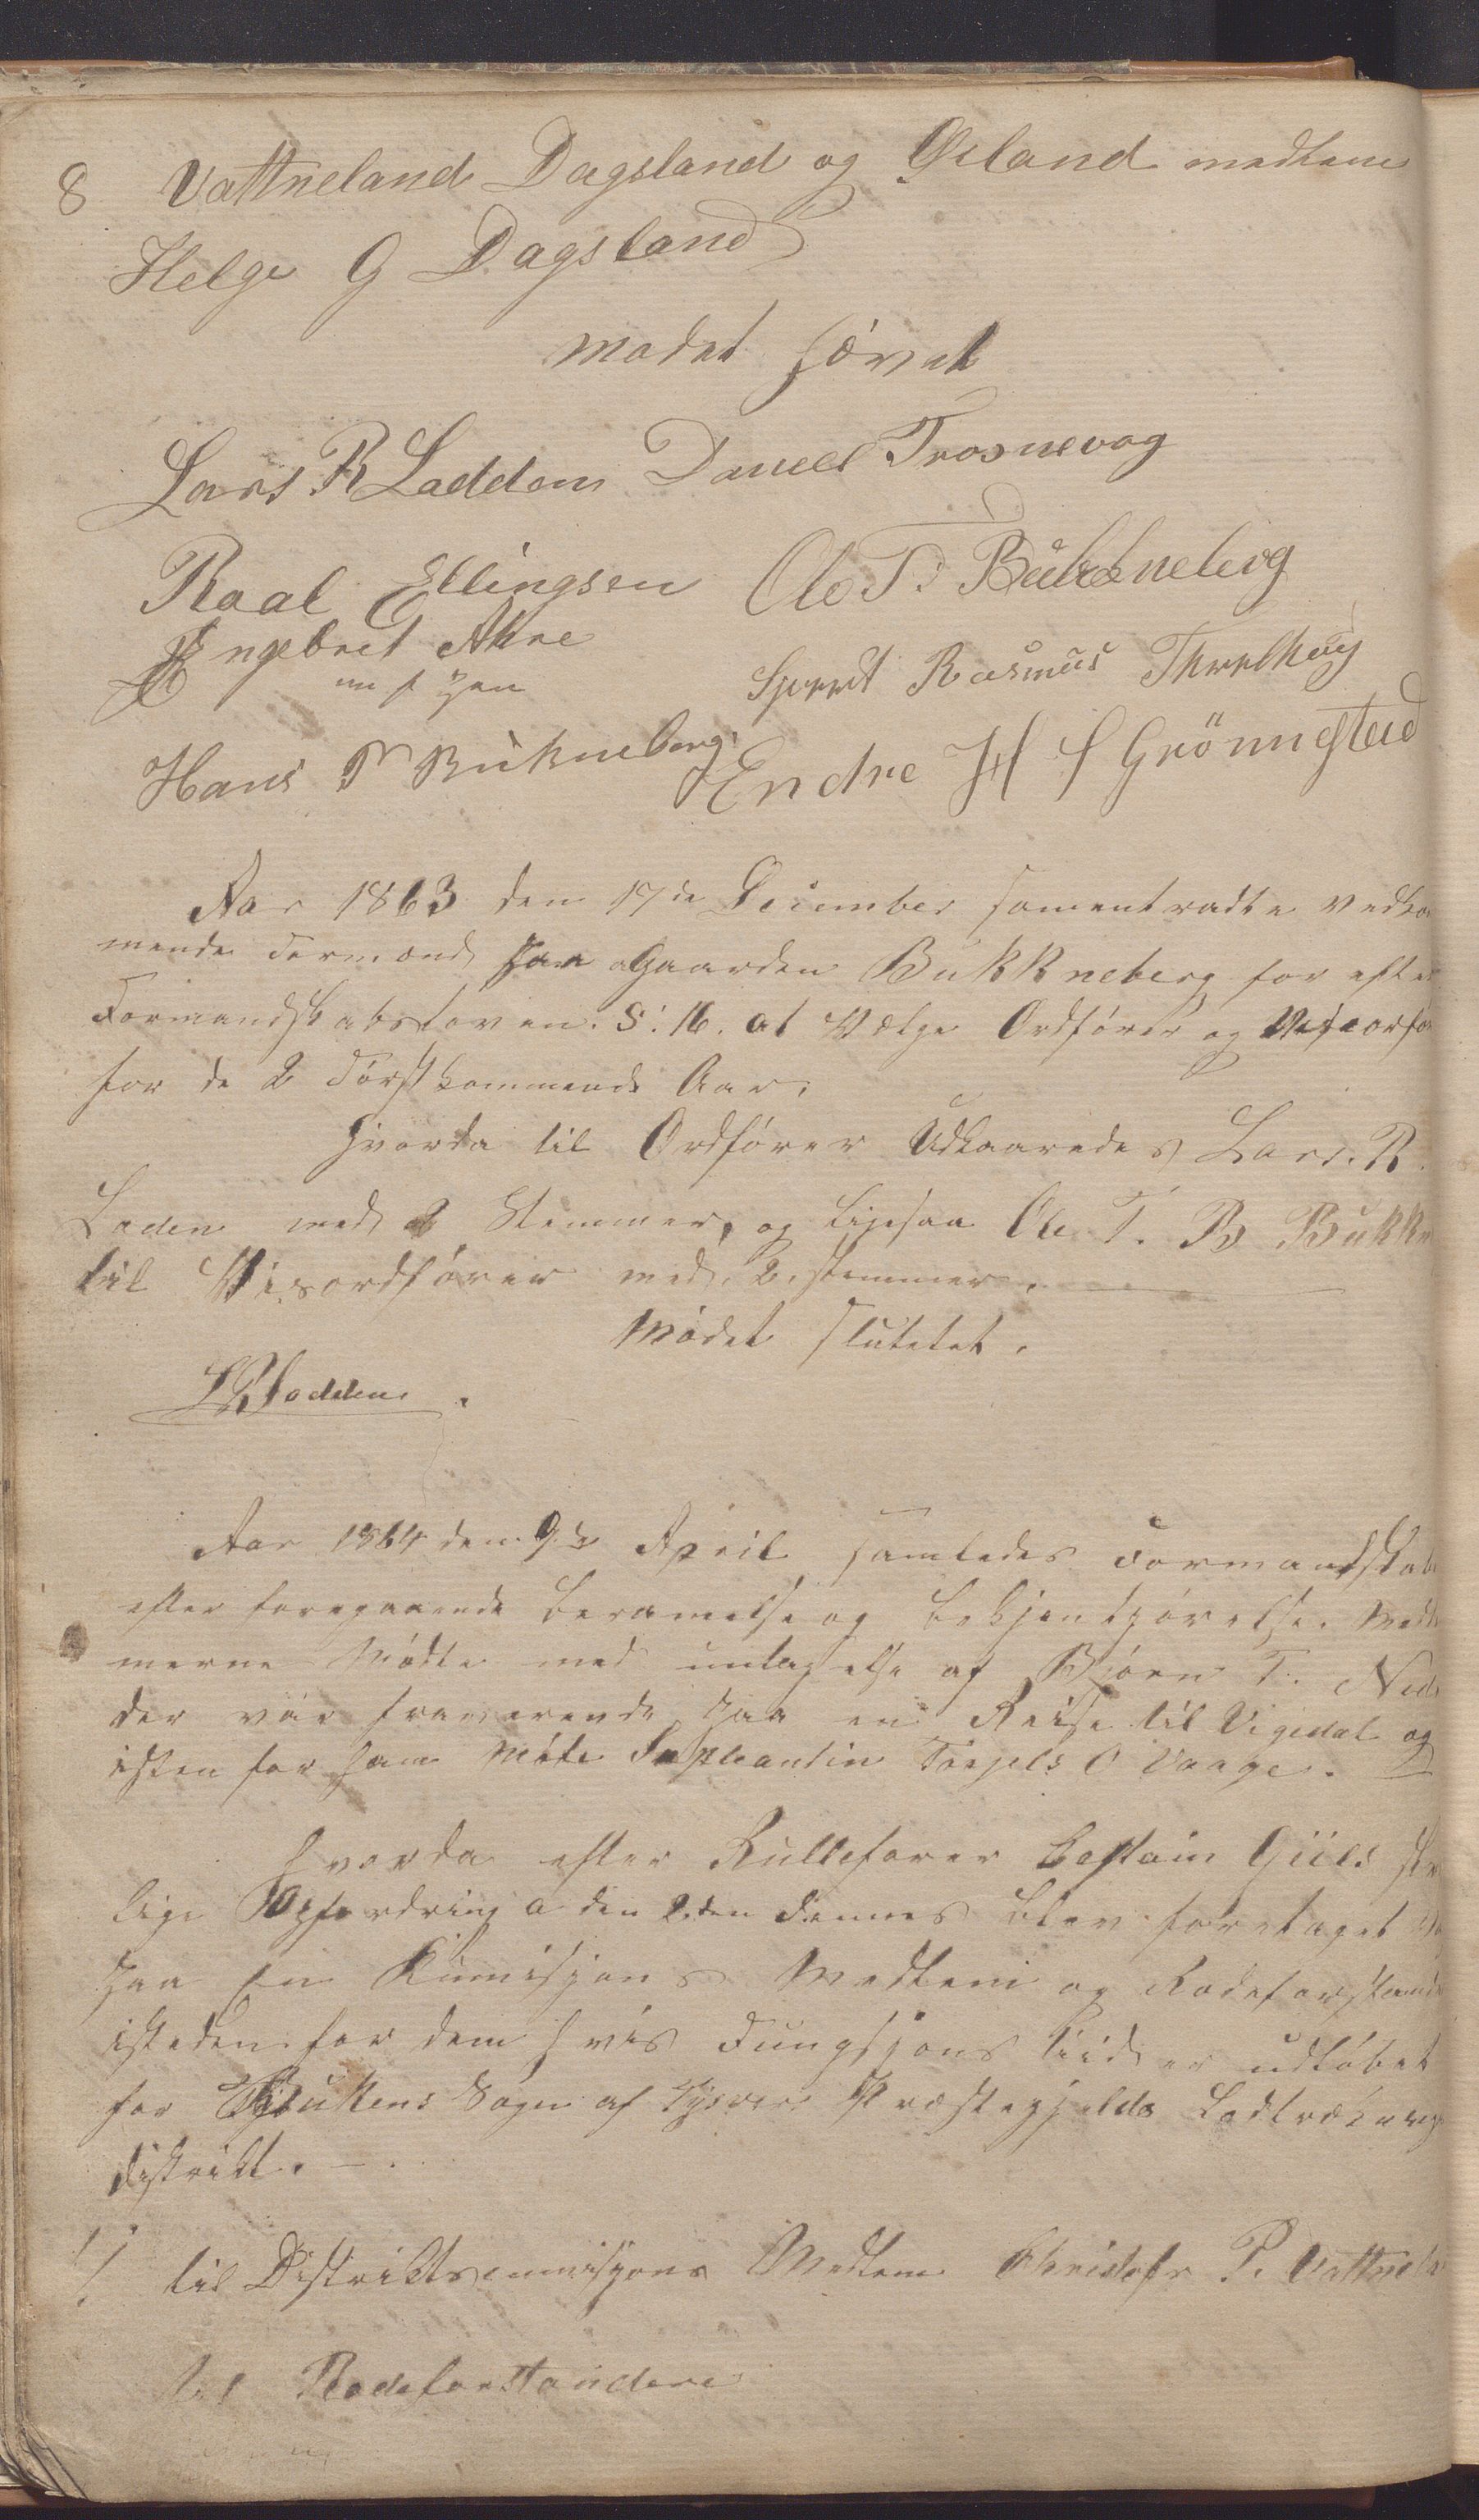 8 Vattneland Dagsland og Øeland medlem
Helge G Dagsland
modet hævet
Lars R Ladden Daneel Trosnevag
Roal Ellingsen Ole T. B Bukkneberg
Engebret Akre
m f pen
Sjovert Rasmus Thrælkøy
Hans P Bukneberg
Endre H S Grönnestad
Aar 1863 den 17de Desember samentradte vedko
mende Formænd paa Gaarden Bukkneberg for efter
Formandskabsloven. §. 16. at Vælge Ordfører og Viseorfø
for de 2 Førstkommende Aar.
hvorda til Ordfører Udkaaredes Lars. R.
Loden med 2 Stemmer, og ligesaa Ole T. B Bukkn
til Visordfører med 2. stemmer.
Mødet sluttet.
LR Lodden.
Aar 1864 den 9de April samledes Formandskab
efter foregaaende beramelse og bekjentgjørelse. Medle
merne Mødte med untagelse af Bjørn T. Ned
der var fraværende paa en Reise til Vigedal og
isten for ham møte Supleantin Torjels O Vaage.
hvorda efter Rullefører Captain Giils skr
lige Opfordring a den 2den dennes blev foretaget va
paa En Kumisjons Medlem og Rodeforstand
istedenfor dem hvis Fungsjons tiid er udløbet
for Bukens Sogn af Tysvær Præstegjelds Lodtræknings
distrikt.
1/ til Distriktscummisjons Medlem Christofr P. Vattnela
til Rodeforstandere